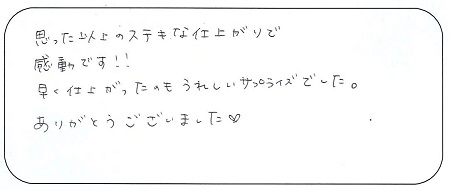 思った以上のステキな仕上がりで
感動です!!
早く仕上がったのもうれしいサプライズでした。
ありがとうございました♡